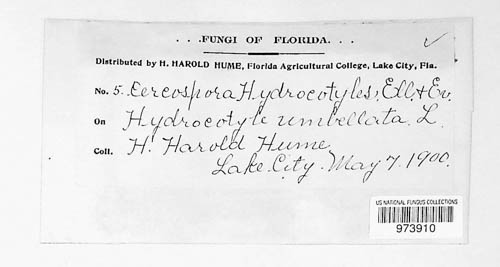 . . .FUNGI OF FLORIDA. . .
Distributed by H. HAROLD HUME, Florida Agricultural College, Lake City, Fla.
No. 5. Cercospora Hydrocotyles, Ell. & Ev.
On Hydrocotyle umbellata. L.
Coll. H. Harold Hume
Lake City. May 7. 1900.
US NATIONAL FUNGUS COLLECTIONS
973910